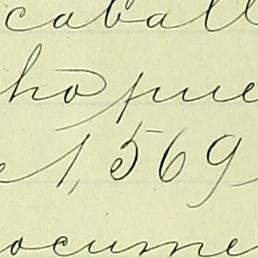 caball
ho pue
1,569
ocume